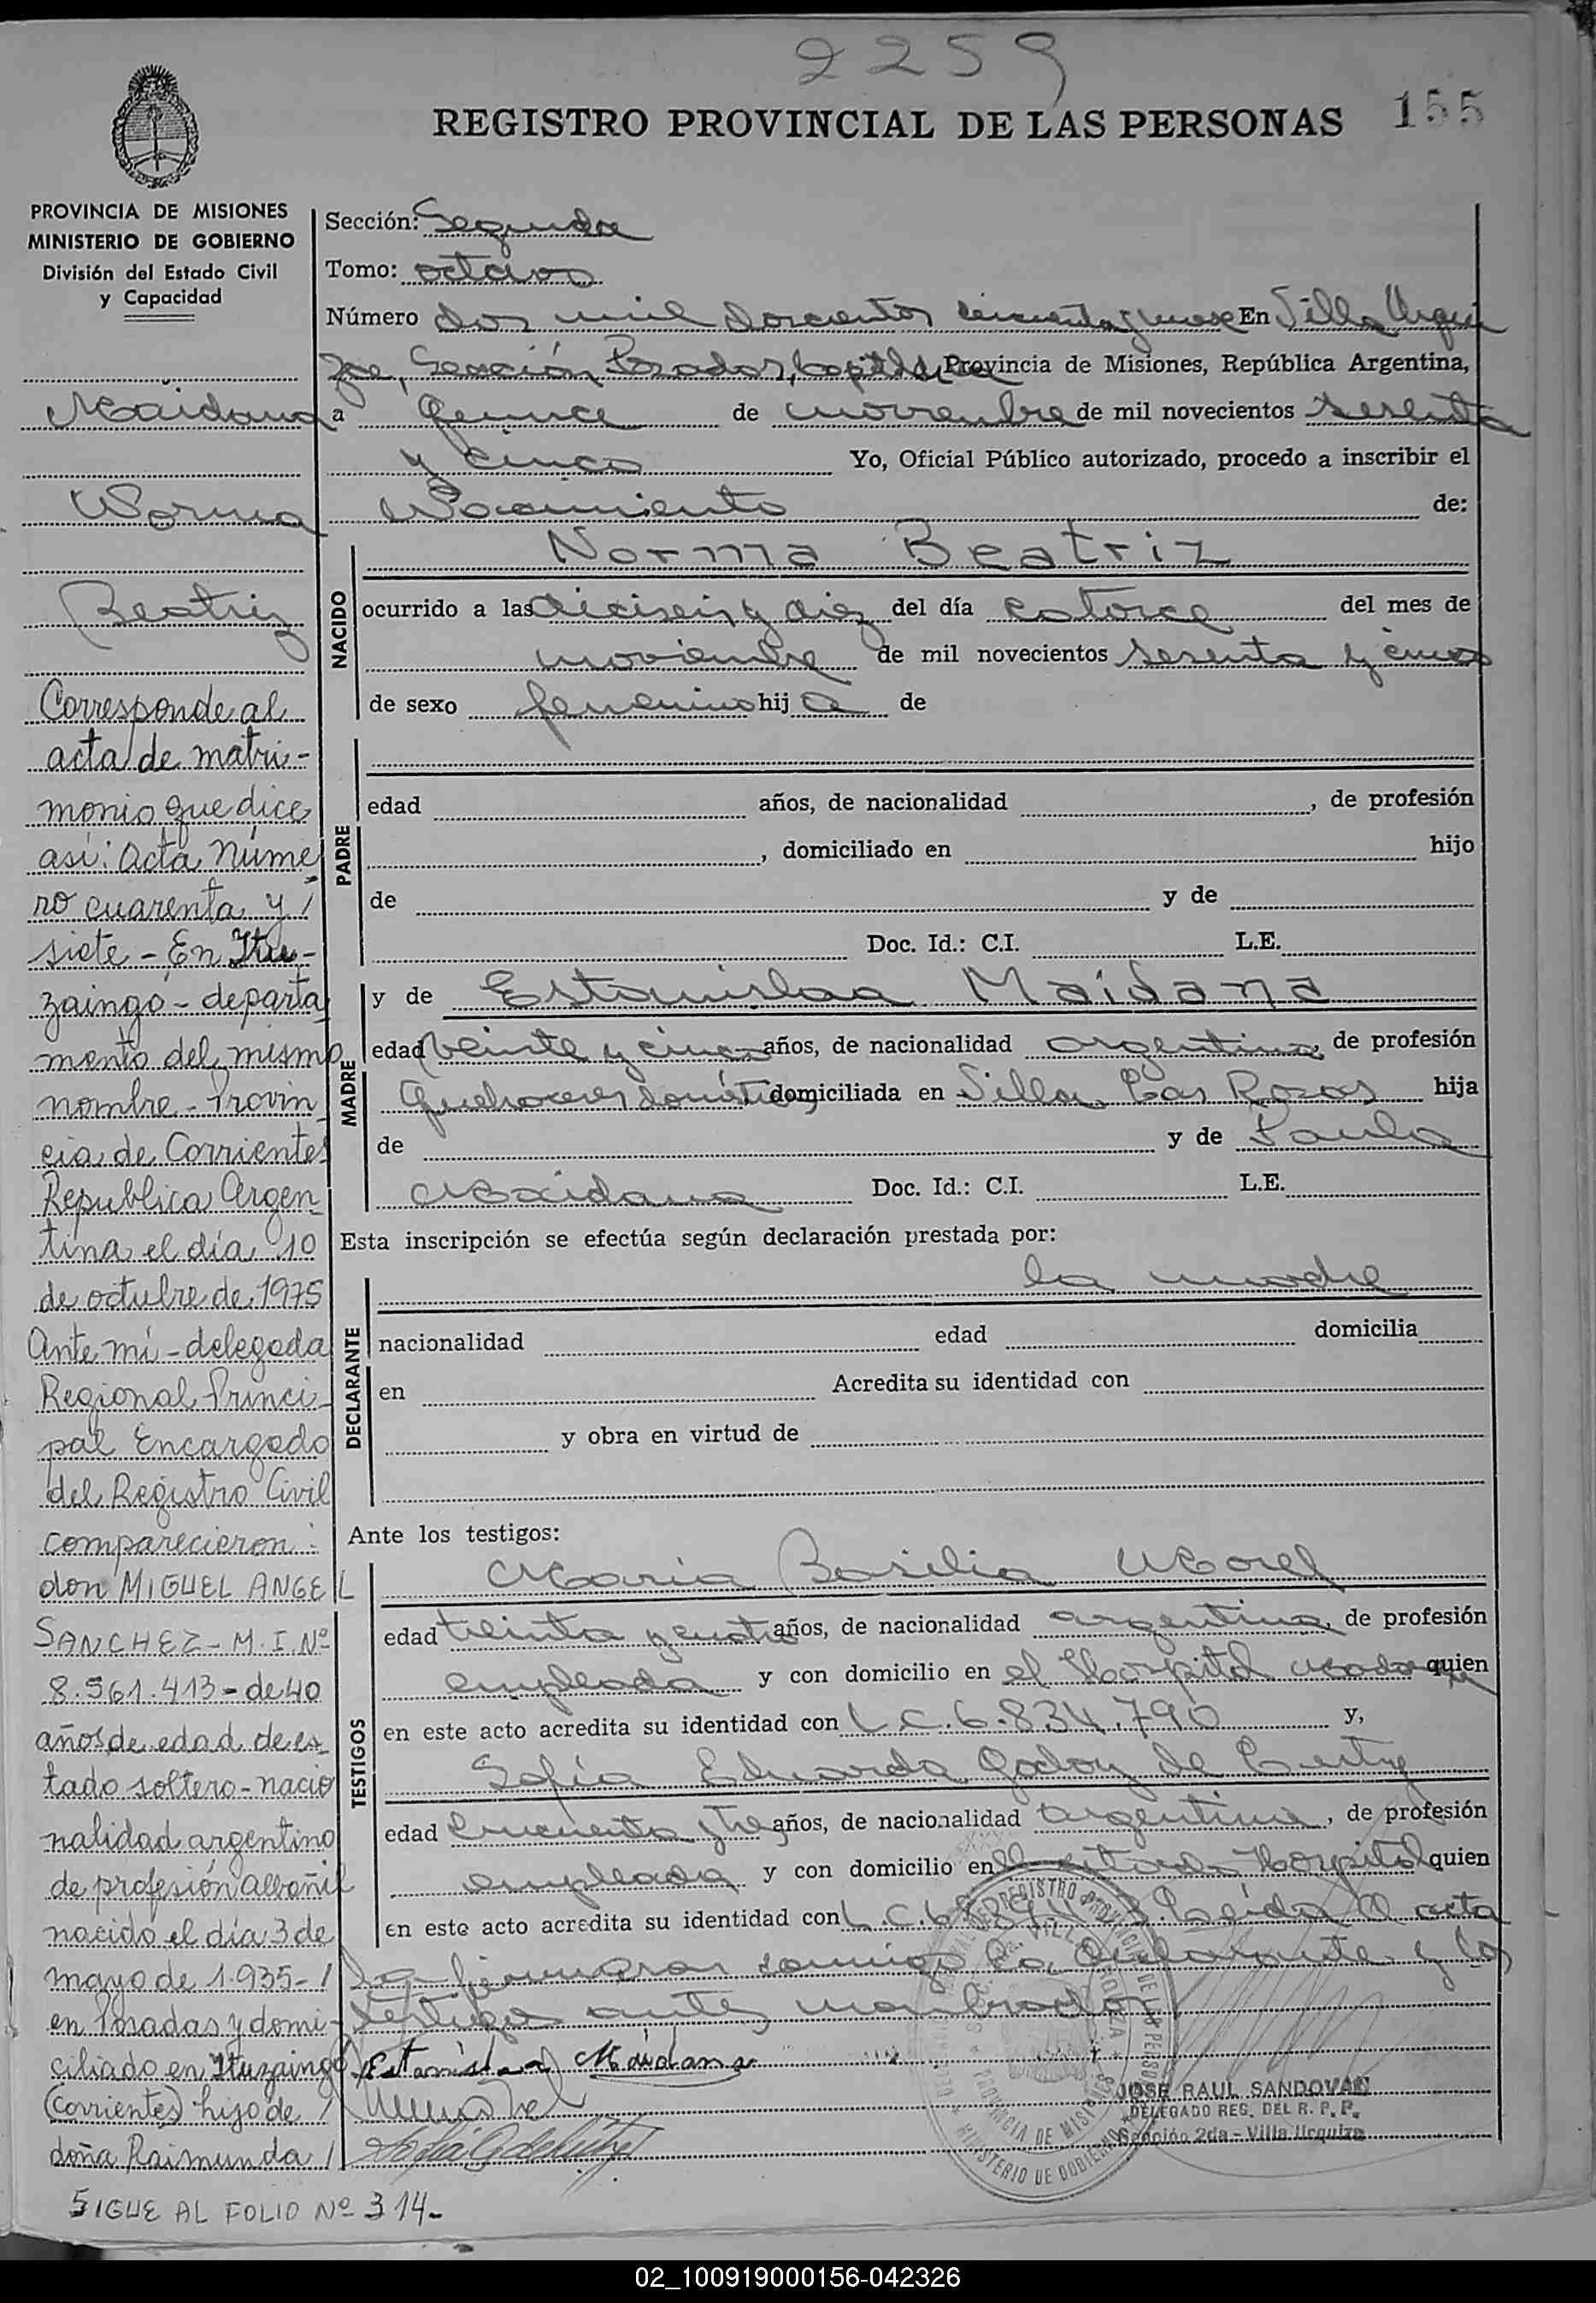 2259
REGISTRO PROVINCIAL DE LAS PERSONAS 155
PROVINCIA DE MISIONES
MINISTERIO DE GOBIERNO
División del Estado Civil
y Capacidad
Maidana
Norma
Beatriz
Corresponde al
acta de matri-
monio que dice
así: Acta Núme
ro cuarenta y /
siete - En Itu-
zaingó - departa
mento del mismo
nombre - Provin
cia de Corrientes
Republica Argen-
tina el día 10
de octubre de 1975
Ante mí - delegada
Regional Princi-
pal Encargado
del Registro Civil
comparecieron :
don MIGUEL ANGEL
SANCHEZ - M.I.Nº
8.561.413 - de 40
años de edad de es-
tado soltero - nacio
nalidad argentino
de profesión albañil
nacido el día 3 de
mayo de 1.935 - /
en Posadas y domi-
ciliado en Ituzaingó
(Corrientes) hijo de /
doña Raimunda /
SIGUE AL FOLIO Nº 314-
Sección: Segunda
Tomo: octavo
Número dos mil doscientos cincuenta y nueve En Villa Urqui
za, Sección Posadas, Capital de la Provincia de Misiones, República Argentina,
a quince de noviembre de mil novecientos sesenta
y cinco Yo, Oficial Público autorizado, procedo a inscribir el
Nacimiento de:
NACIDO
Norma Beatriz
ocurrido a las dieciseis y diez del día catorce del mes de
noviembre de mil novecientos sesenta y cinco
de sexo femenino hij a de
PADRE
edad años, de nacionalidad , de profesión
, domiciliado en hijo
de y de
Doc. Id.: C.I. L.E.
MADRE
y de Estanislaa Maidana
edad veinte y cinco años, de nacionalidad argentina, de profesión
Quehaceres domésticos domiciliada en Villa Las Rosas hija
de y de Paula
Maidana Doc. Id.: C.I. L.E.
Esta inscripción se efectúa según declaración prestada por:
DECLARANTE
la madre
nacionalidad edad domicilia
en Acredita su identidad con
y obra en virtud de
Ante los testigos:
TESTIGOS
Maria Basilia Morel
edad treinta y cuatro años, de nacionalidad argentina, de profesión
empleada y con domicilio en el Hospital quien
en este acto acredita su identidad con L.C.6.834.790 y,
Sofía Eduarda Godoy de
edad cincuenta y tres años, de nacionalidad argentina, de profesión
empleada y con domicilio en el citado Hospital quien
en este acto acredita su identidad con L.C. Leída el acta
la firmaron conmigo la declarante y los
testigos antes nombrados
Estanislaa Maidana
JOSE RAUL SANDOVAL
DELEGADO REG. DEL R. P. P.
Sección 2da - Villa Urquiza
02_100919000156-042326